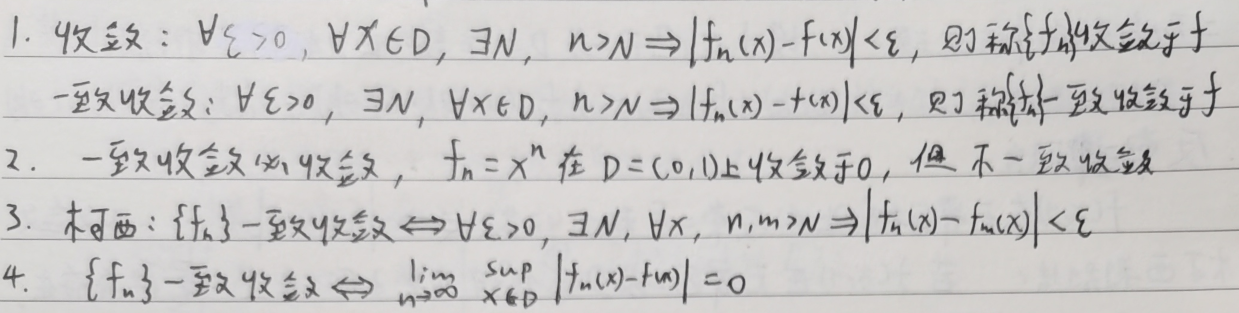 1. 收敛: ∀ε>0, ∀x∈D, ∃N, n>N⇒|fn(x)-f(x)|<ε, 则称{fn}收敛于f
一致收敛: ∀ε>0, ∃N, ∀x∈D, n>N⇒|fn(x)-f(x)|<ε, 则称{fn}一致收敛于f
2. 一致收敛必收敛, fn=xⁿ在D=(0,1)上收敛于0, 但不一致收敛
3. 柯西: {fn}一致收敛⇔∀ε>0, ∃N, ∀x, n,m>N⇒|fn(x)-fm(x)|<ε
4. {fn}一致收敛⇔ lim n→∞ sup x∈D |fn(x)-f(x)|=0